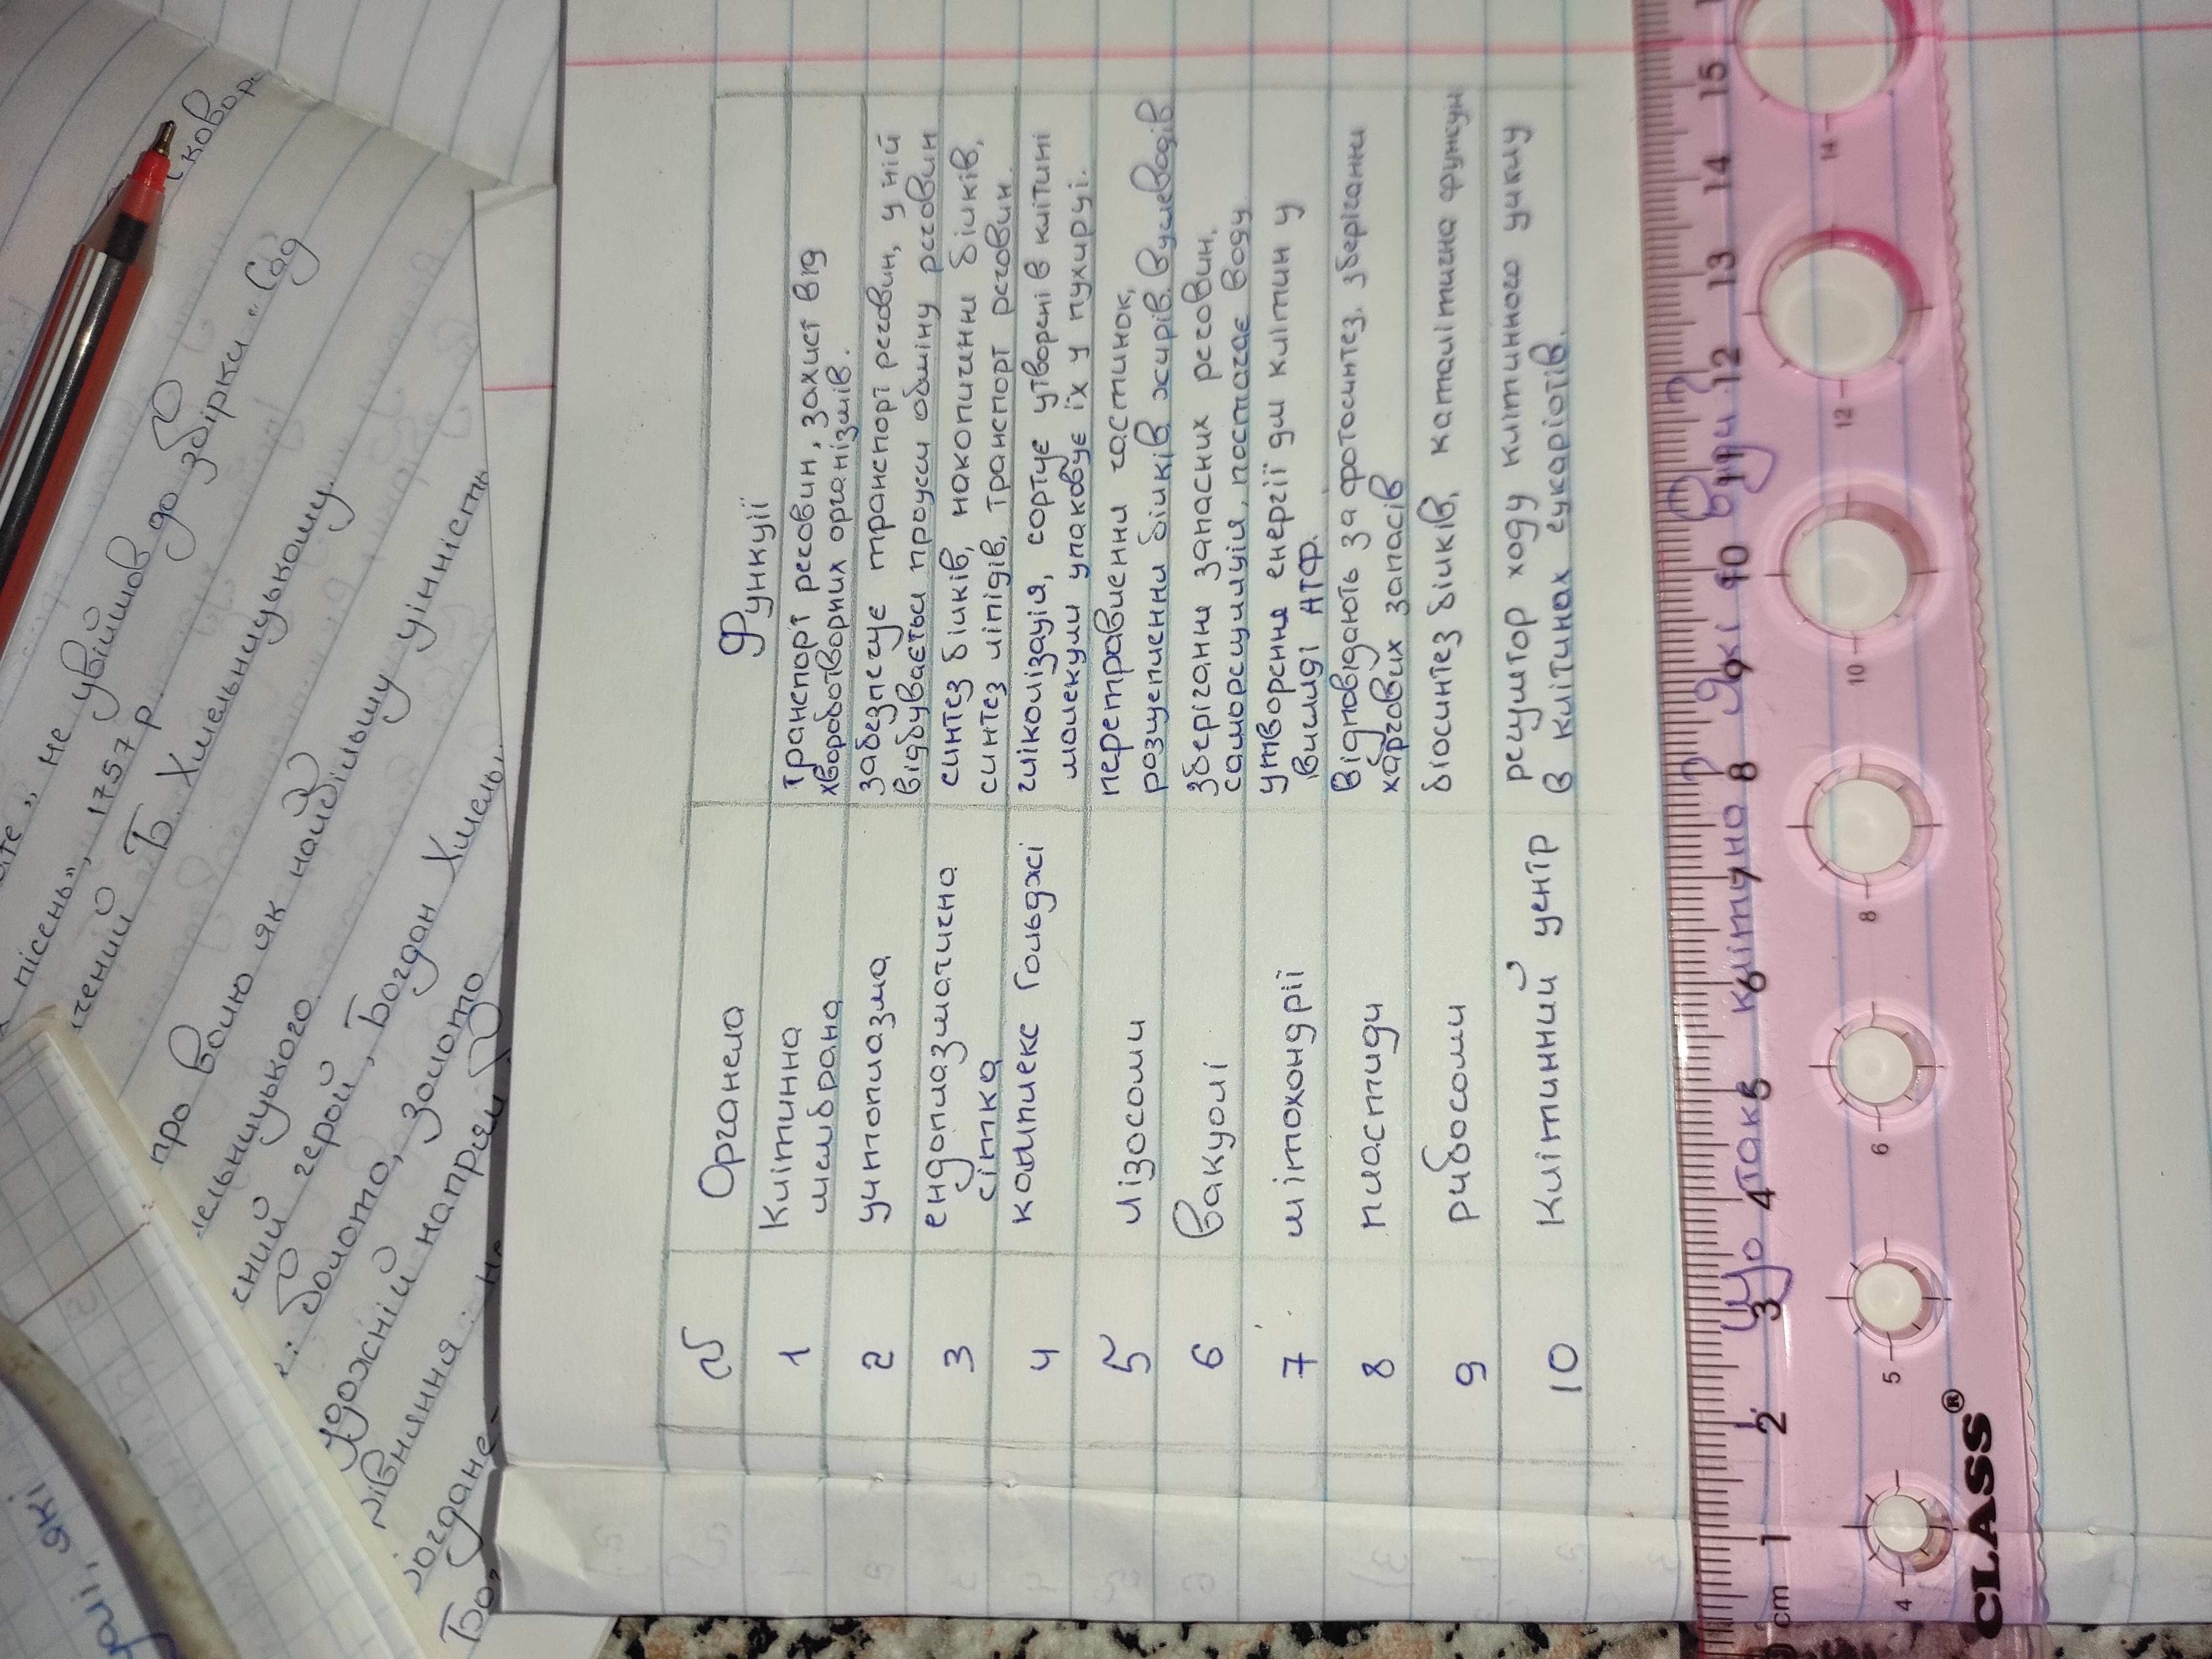 № Органела Функції
1 Клітинна мембрана
транспорт речовин, захист від
хвороботворних організмів.
2 цитоплазма
забезпечує транспорт речовин, у ній
відбувається процеси обміну речовин
3 ендоплазматична сітка
синтез білків, накопичення білків,
синтез ліпідів, транспорт речовин.
4 комплекс Гольджі
гліколізація, сортує утворені в клітині
молекули упаковує їх у пухирці.
5 лізосоми
перетравлення часточок,
розщеплення білків жирів вуглеводів
6 Вакуолі
зберігання запасних речовин,
саморегуляція, постачає воду
7 мітохондрії
утворення енергії для клітин у
вигляді АТФ.
8 пластиди
Відповідають за фотосинтез. зберігання
харчових запасів
9 рибосоми
біосинтез білків, каталітична функція
10 Клітинний центр
регулятор ходу клітинного циклу
в клітинах еукаріотів.
Що таке клітина? Які види
CLASS®
cm 1 2 3 4 5 6 7 8 9 10 11 12 13 14 15
4 5 6 8 10 12 14
не увійшов до збірки „Сад
пісень”, 1757 р.
Б. Хмельницькому.
про волю як найбільшу цінність
герой, Богдан Хмель
болото, золото
напрям
Богдане
які